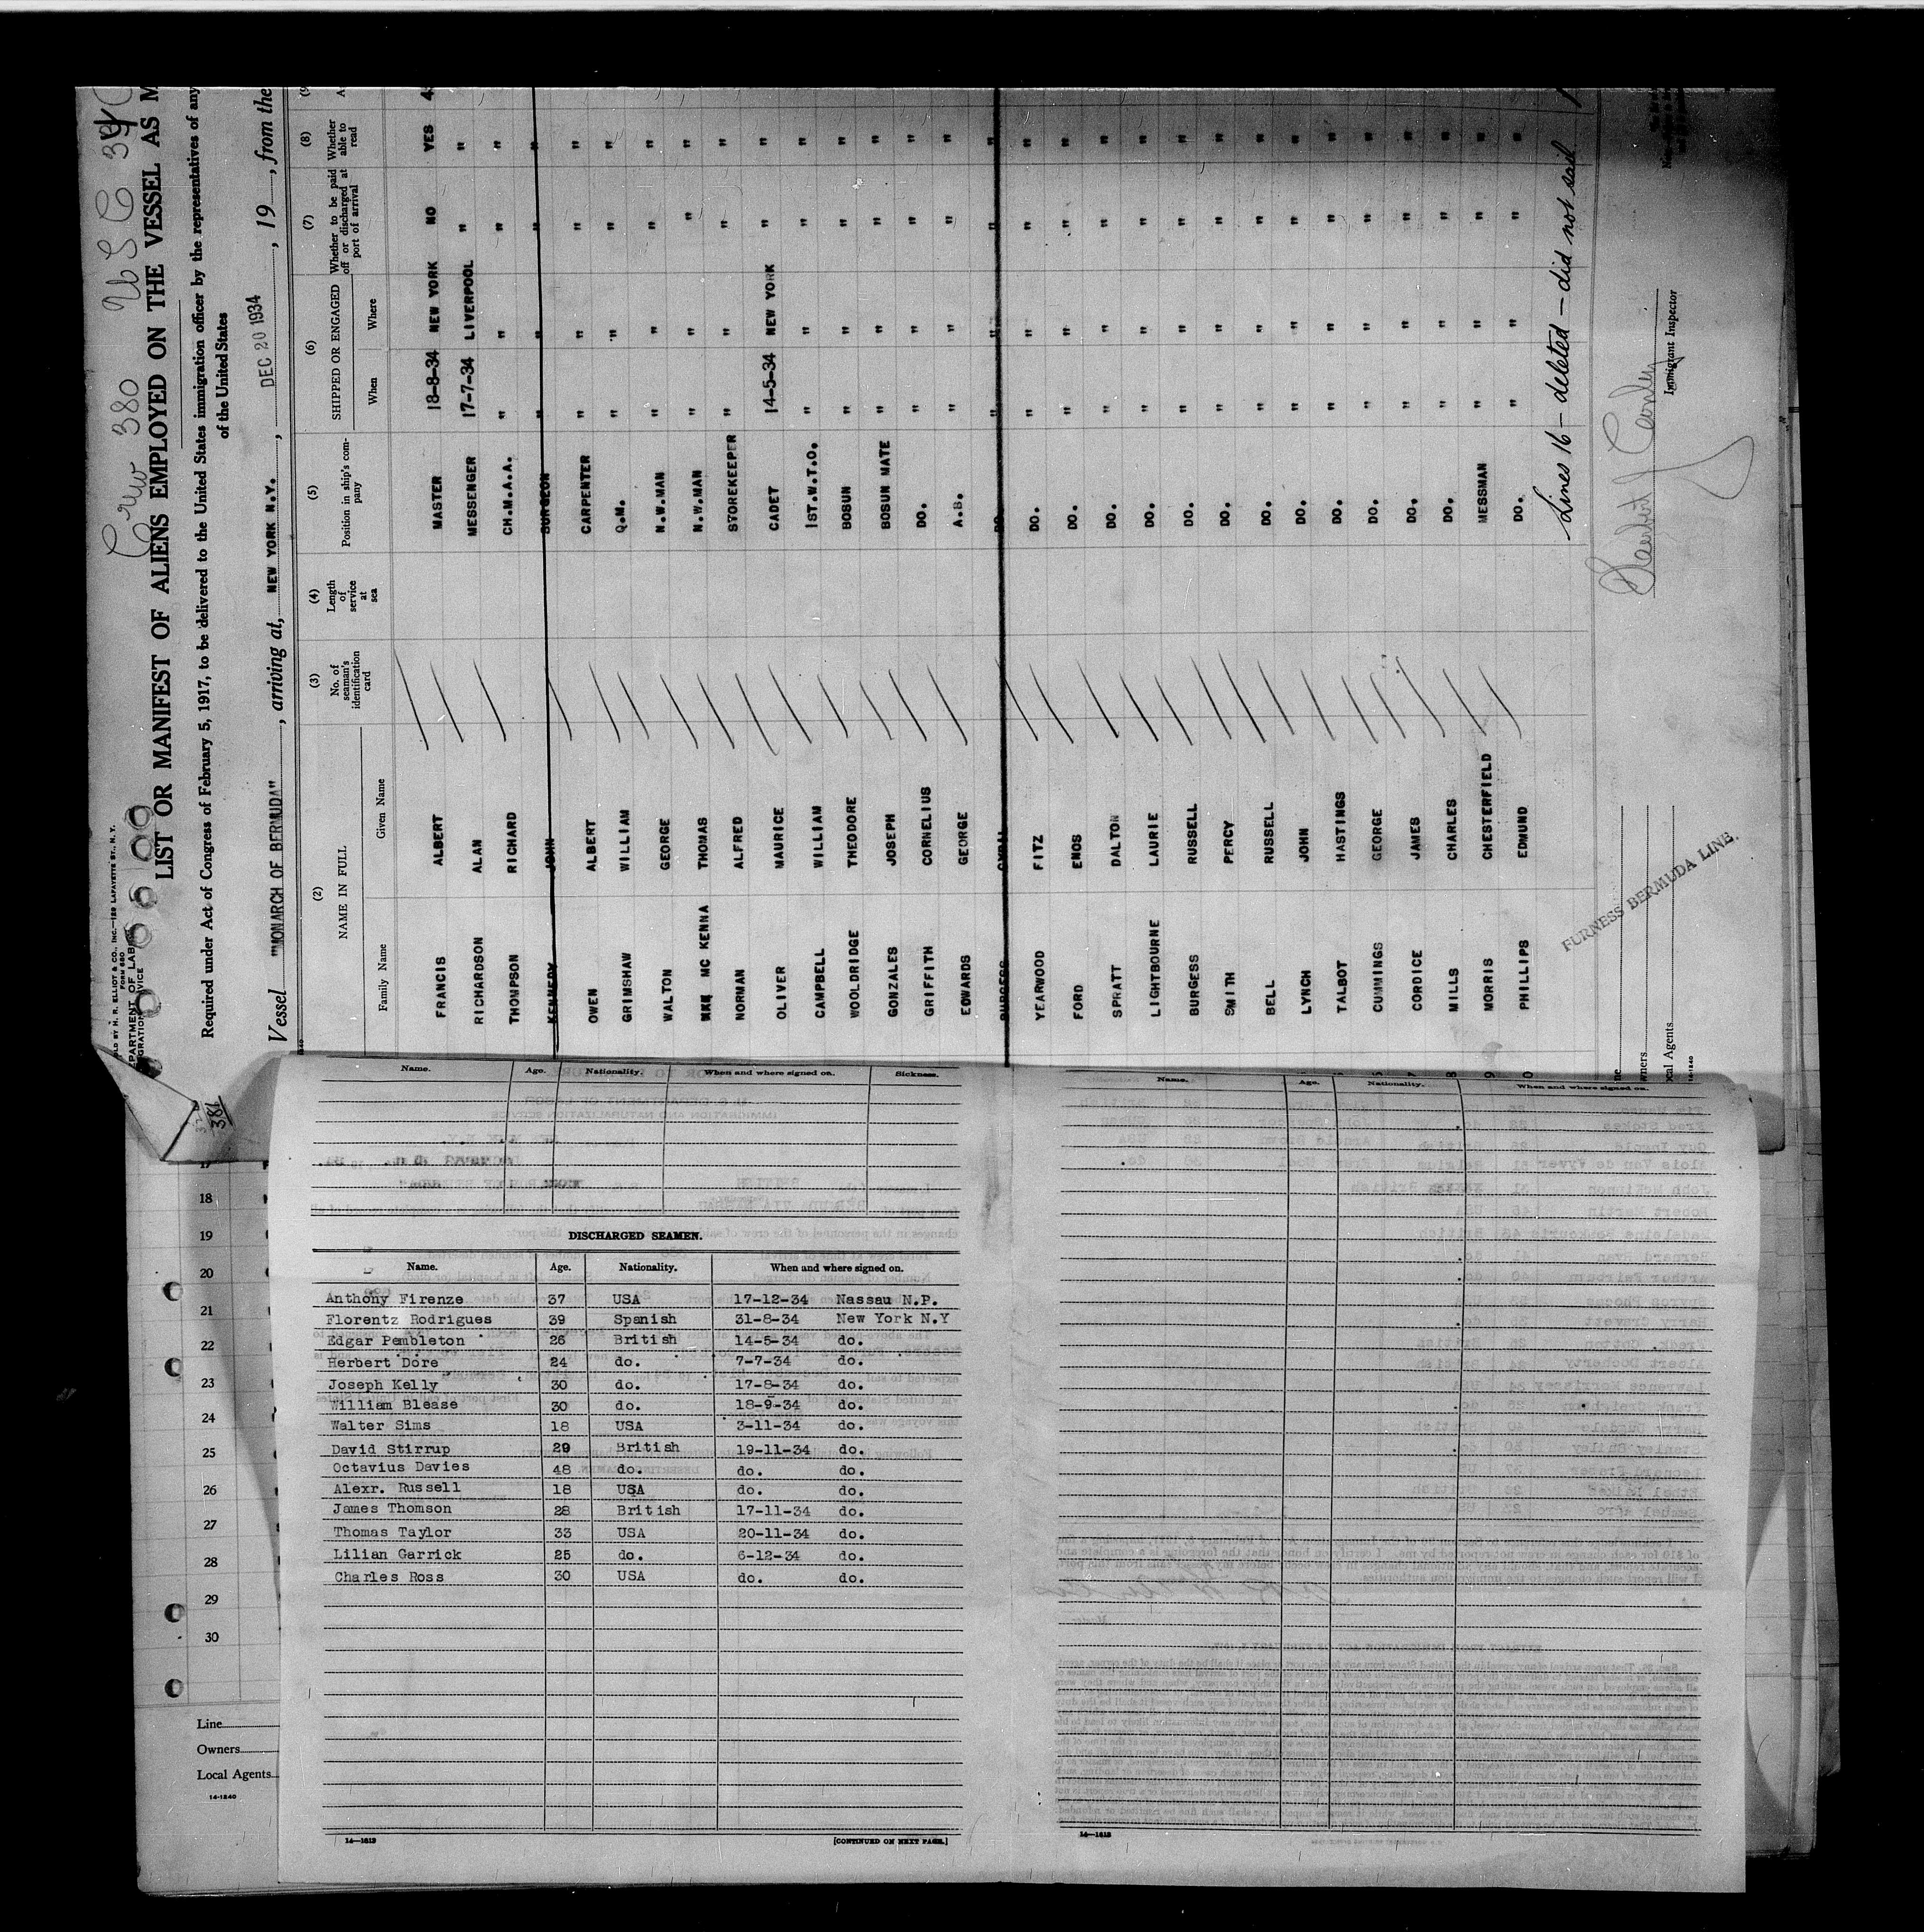 Crew 380 USC
SOLD BY H. R. ELLIOT & CO., INC.—129 LAFAYETTE ST., N.Y.
FORM 680
LIST OR MANIFEST OF ALIENS EMPLOYED ON THE VESSEL AS M
Required under Act of Congress of February 5, 1917, to be delivered to the United States immigration officer by the representatives of any
of the United States
Vessel "MONARCH OF BERMUDA", arriving at, NEW YORK N.Y., DEC 20 1934, 19, from the
(2) (3) (4) (5) (6) (7) (8)
NAME IN FULL No. of seaman's identification card Length of service at sea Position in ship's company SHIPPED OR ENGAGED Whether to be paid off or discharged at port of arrival Whether able to read
Family Name Given Name When Where
FRANCIS ALBERT MASTER 18-8-34 NEW YORK NO YES
RICHARDSON ALAN MESSENGER 17-7-34 LIVERPOOL " "
THOMPSON RICHARD CH.M.A.A. " " " "
KENNEDY JOHN SURGEON " " " "
OWEN ALBERT CARPENTER " " " "
GRIMSHAW WILLIAM Q.M. " " " "
WALTON GEORGE N.W.MAN " " " "
MC KENNA THOMAS N.W.MAN " " " "
NORMAN ALFRED STOREKEEPER " " " "
OLIVER MAURICE CADET 14-5-34 NEW YORK " "
CAMPBELL WILLIAM 1ST.W.T.O. " " " "
WOOLDRIDGE THEODORE BOSUN " " " "
GONZALES JOSEPH BOSUN MATE " " " "
GRIFFITH CORNELIUS DO. " " " "
EDWARDS GEORGE A.B. " " " "
BURGESS CYRAL DO. " " " "
YEARWOOD FITZ DO. " " " "
FORD ENOS DO. " " " "
SPRATT DALTON DO. " " " "
LIGHTBOURNE LAURIE DO. " " " "
BURGESS RUSSELL DO. " " " "
SMITH PERCY DO. " " " "
BELL RUSSELL DO. " " " "
LYNCH JOHN DO. " " " "
TALBOT HASTINGS DO. " " " "
CUMMINGS GEORGE DO. " " " "
CORDICE JAMES DO. " " " "
MILLS CHARLES DO. " " " "
MORRIS CHESTERFIELD MESSMAN " " " "
PHILLIPS EDMUND DO. " " " "
Lines 16 — deleted — did not sail
Immigrant Inspector
FURNESS BERMUDA LINE.
14-1240
381
Name. Age. Nationality. When and where signed on. Sickness.
DISCHARGED SEAMEN.
Name. Age. Nationality. When and where signed on.
Anthony Firenze 37 USA 17-12-34 Nassau N.P.
Florentz Rodrigues 39 Spanish 31-8-34 New York N.Y
Edgar Pembleton 26 British 14-5-34 do.
Herbert Dore 24 do. 7-7-34 do.
Joseph Kelly 30 do. 17-8-34 do.
William Blease 30 do. 18-9-34 do.
Walter Sims 18 USA 3-11-34 do.
David Stirrup 29 British 19-11-34 do.
Octavius Davies 48 do. do. do.
Alexr. Russell 18 USA do. do.
James Thomson 28 British 17-11-34 do.
Thomas Taylor 33 USA 20-11-34 do.
Lilian Garrick 25 do. 6-12-34 do.
Charles Ross 30 USA do. do.
14—1613 [CONTINUED ON NEXT PAGE.]
Name. Age. Nationality. When and where signed on.
14—1613
17
18
19
20
21
22
23
24
25
26
27
28
29
30
Line
Owners
Local Agents
14-1240